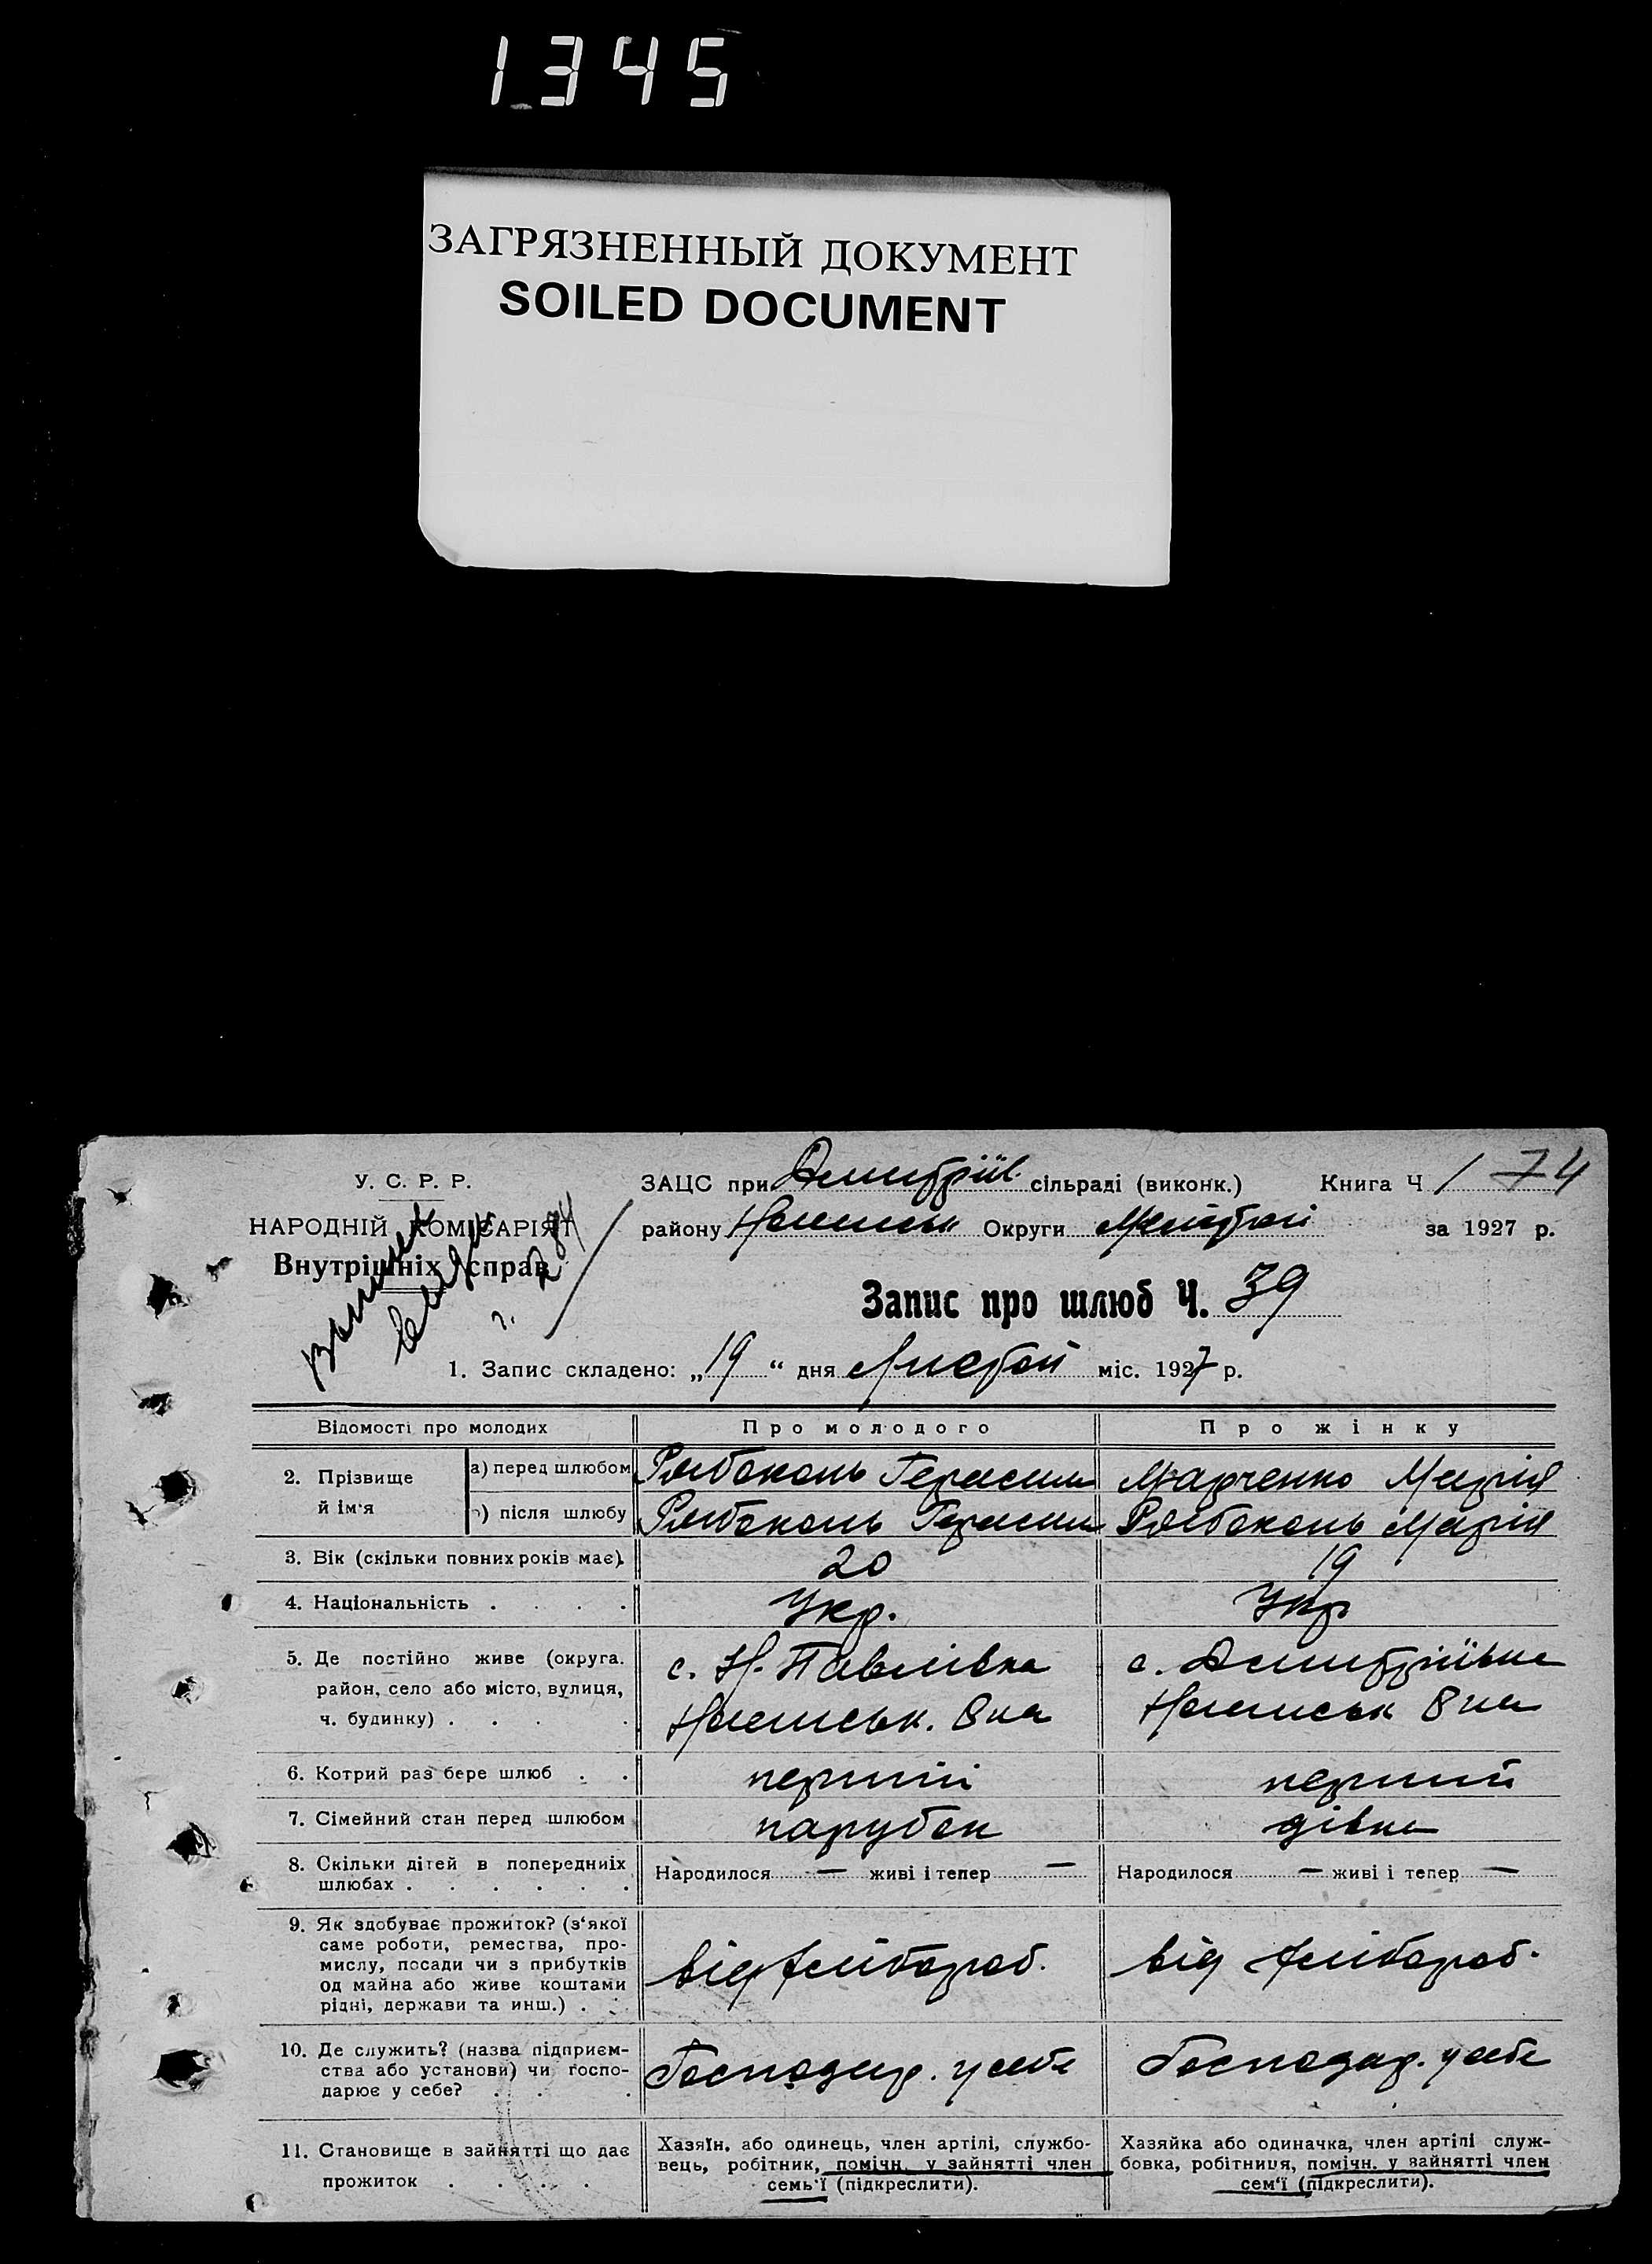 1345
ЗАГРЯЗНЕННЫЙ ДОКУМЕНТ
SOILED DOCUMENT
У. С. Р. Р.
НАРОДНІЙ КОМІСАРІЯТ
Внутрішніх справ
ЗАЦС при Дмитріїв. сільраді (виконк.) Книга Ч 1 74
району Округи за 1927 р.
Запис про шлюб Ч. 39
1. Запис складено: „19“ дня Листоп міс. 1927 р.
Відомості про молодих Про молодого Про жінку
2. Прізвище й ім'я
а) перед шлюбом Рябоконь Герасим Марченко Марія
б) після шлюбу Рябоконь Герасим Рябоконь Марія
3. Вік (скільки повних років має). 20 19
4. Національність . . . . Укр. Укр
5. Де постійно живе (округа. с. Н-Павлівка с. Дмитріївка
район, село або місто, вулиця,
ч. будинку) . . . .
6. Котрий раз бере шлюб . . перший перший
7. Сімейний стан перед шлюбом парубок дівка
8. Скільки дітей в попередніх Народилося — живі і тепер — Народилося — живі і тепер —
шлюбах . . . . . .
9. Як здобуває прожиток? (з'якої
саме роботи, ремества, про-
мислу, посади чи з прибутків від хлібороб. від хлібороб.
од майна або живе коштами
рідні, держави та инш.) . .
10. Де служить? (назва підприєм-
ства або установи) чи госпо- Господар. у себе Господар. у себе
дарює у себе? . . .
11. Становище в зайнятті що дає
прожиток . . . . .
Хазяїн, або одинець, член артілі, службо-
вець, робітник, помічн. у зайнятті член
семь'ї (підкреслити).
Хазяйка або одиначка, член артілі служ-
бовка, робітниця, помічн. у зайнятті член
сем'ї (підкреслити).